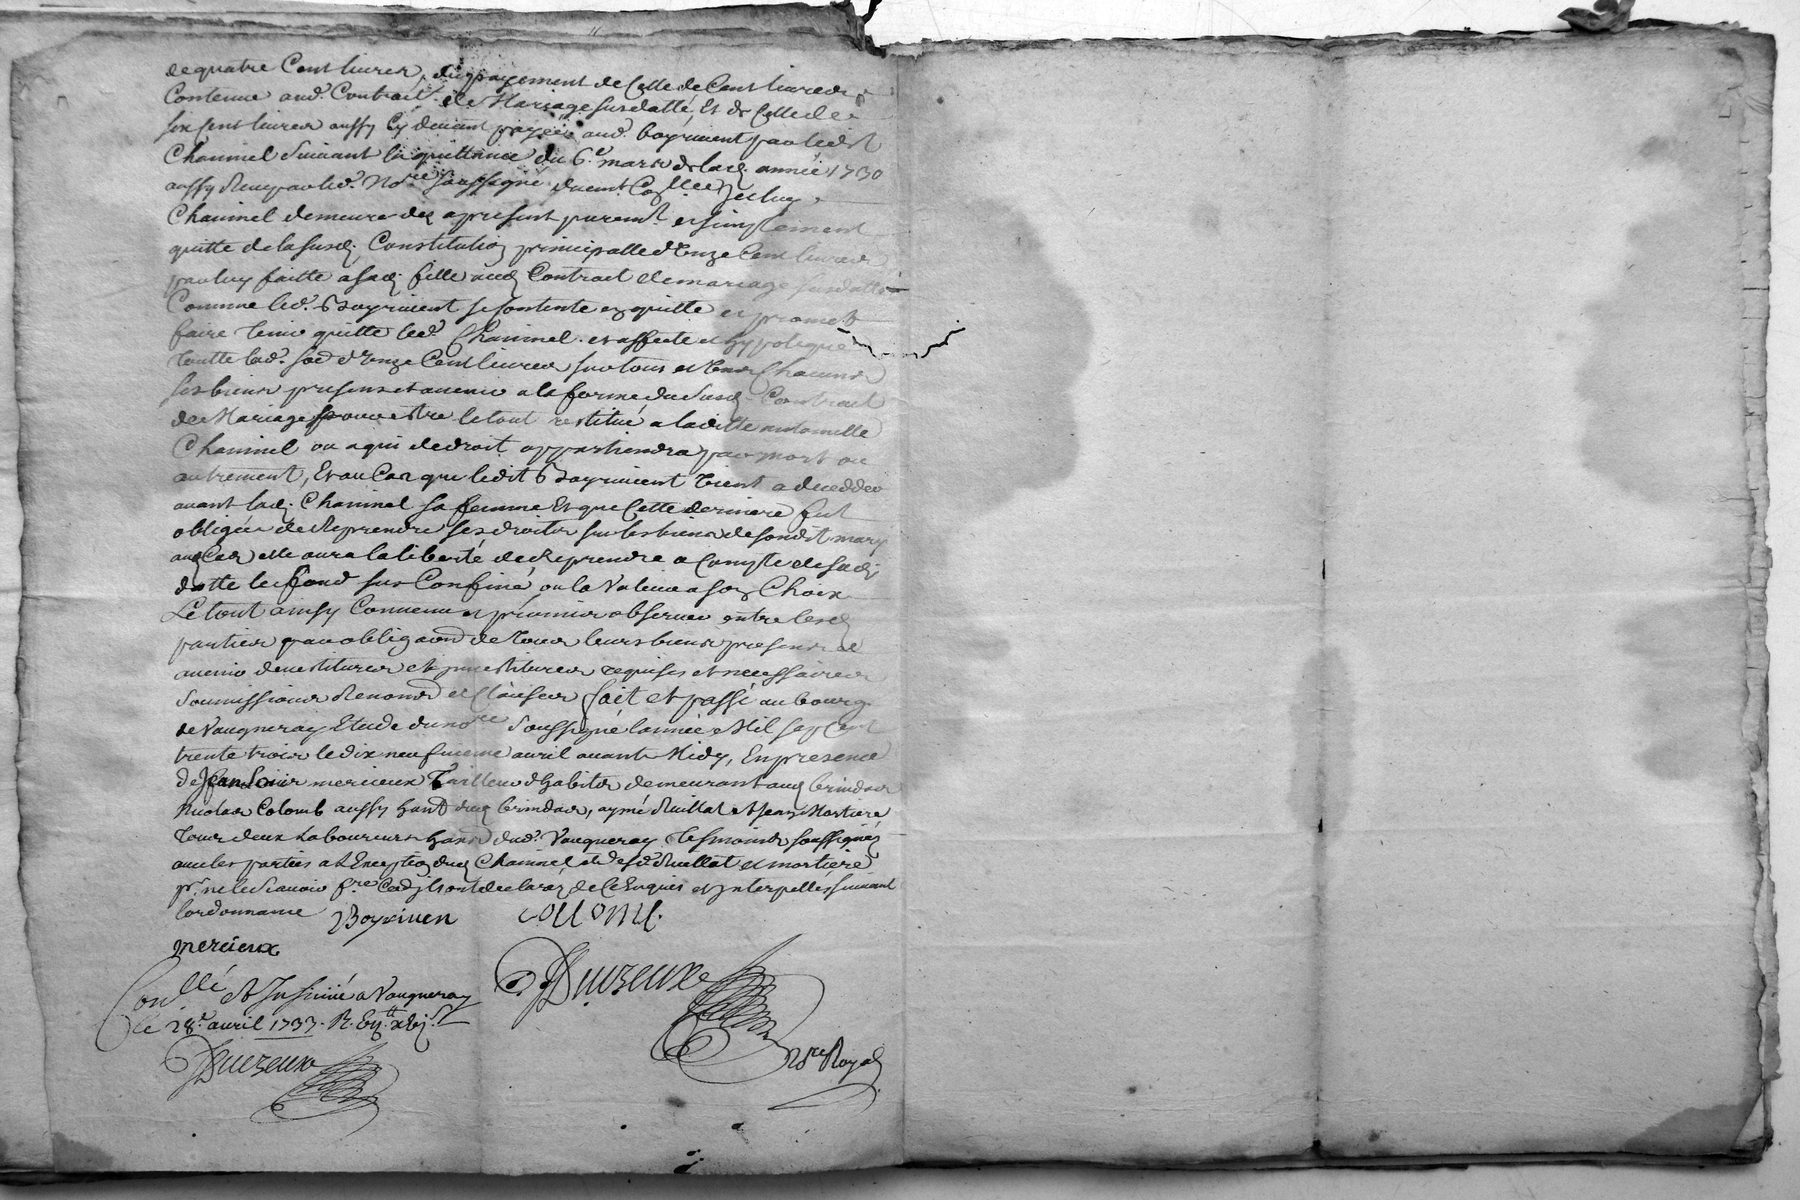 de quatre Cent livres, du payement de Celle de Cent livres
Contenue aud. Contrait de Mariage susdatté, Et de Celle de
six Cent livres aussy Cy devant payée aud. Boyrivent par ledit
Chaninel Suivant la quittance du 6.e mars de lad. année 1730
aussy Receu par led. No.re soussigné
Chaninel demeure des apresent purem.t et simplement
quitte de la susd. Constitution principalle d'Onze Cent livres
par luy faitte a sad. fille aud. Contract de mariage susdatté
Comme led. Boyrivent se Contente en quitte et promet
faire tenir quitte led. Chaninel. et affecte et hypoteque
toutte lad. so.e d'Onze Cent livres sur tous et Uns Chacuns
ses biens presens et avenir a la forme du susd. Contract
de Mariage pour estre le tout restitué a laditte antoinette
Chaninel ou a qui de droit appartiendra par mort ou
autrement, Et au Cas que ledit Boyrivent Vient a deceder
avant lad. Chaninel sa femme Et que Cette derniere fut
obligée de Reprendre ses droits sur les biens de sondit mary
aud. Cas elle aura la liberté de Reprendre a Compte de sad.
dotte le fond sus Confiné ou la Valeur a son Choix
Le tout ainsy Convenu et promis observer entre lesd.
parties par obliga.on de tous leurs biens presens et
avenir devestitures et investitures requises et necessaires
Soumissions Renon.s et Clauses fait et passé au bourg
de Vaugneray Etude du no.re Soussigné l'année Mil sept Cent
trente trois le dix neufvieme avril avant Midy, En presence
de Jean Louis mercieux Tailleur d'habits demeurant aud. brindas
Nicolas Colomb aussy hant dud. brindas, aymé Ruillat et Jean Mortiere
tous deux Laboureurs han.s dud. Vaugneray tesmoins soussignés
avec les parties a L'Exception dud. Chaninel et desd. Ruillat et mortiere
p.r ne le Scavoir f.re Ainsy qu'ont declaré de Ce Enquis et Interpellés suivant
l'ordonnance Boyriven COLLOMB.
mercieux
Con.llé Et Insinué a Vaugneray
le 28.e avril 1733.
Duzeux
Duzeux
N.re Royal